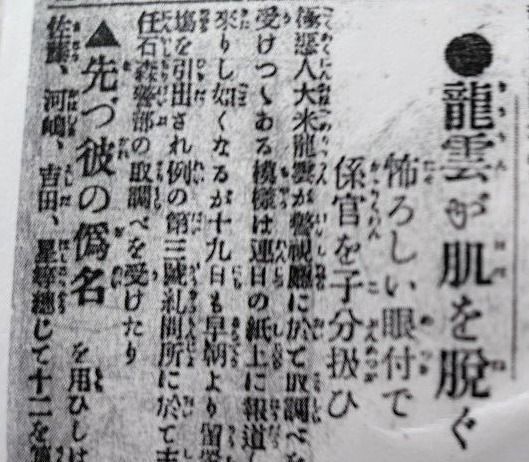 ●龍雲が肌を脱ぐ
怖ろしい眼付で
係官を子分扱ひ
極悪人大米龍雲が警視廳に於て取調べを
受けつゝある模様は連日の紙上に報道し
來りし如くなるが十九日も早朝より留
塲を引出され例の第三號糺問所に於て主
任石森警部の取調べを受けたり
▲先づ彼の僞名 を用ひしは
佐藤、河嶋、吉田、星等總じて十二を